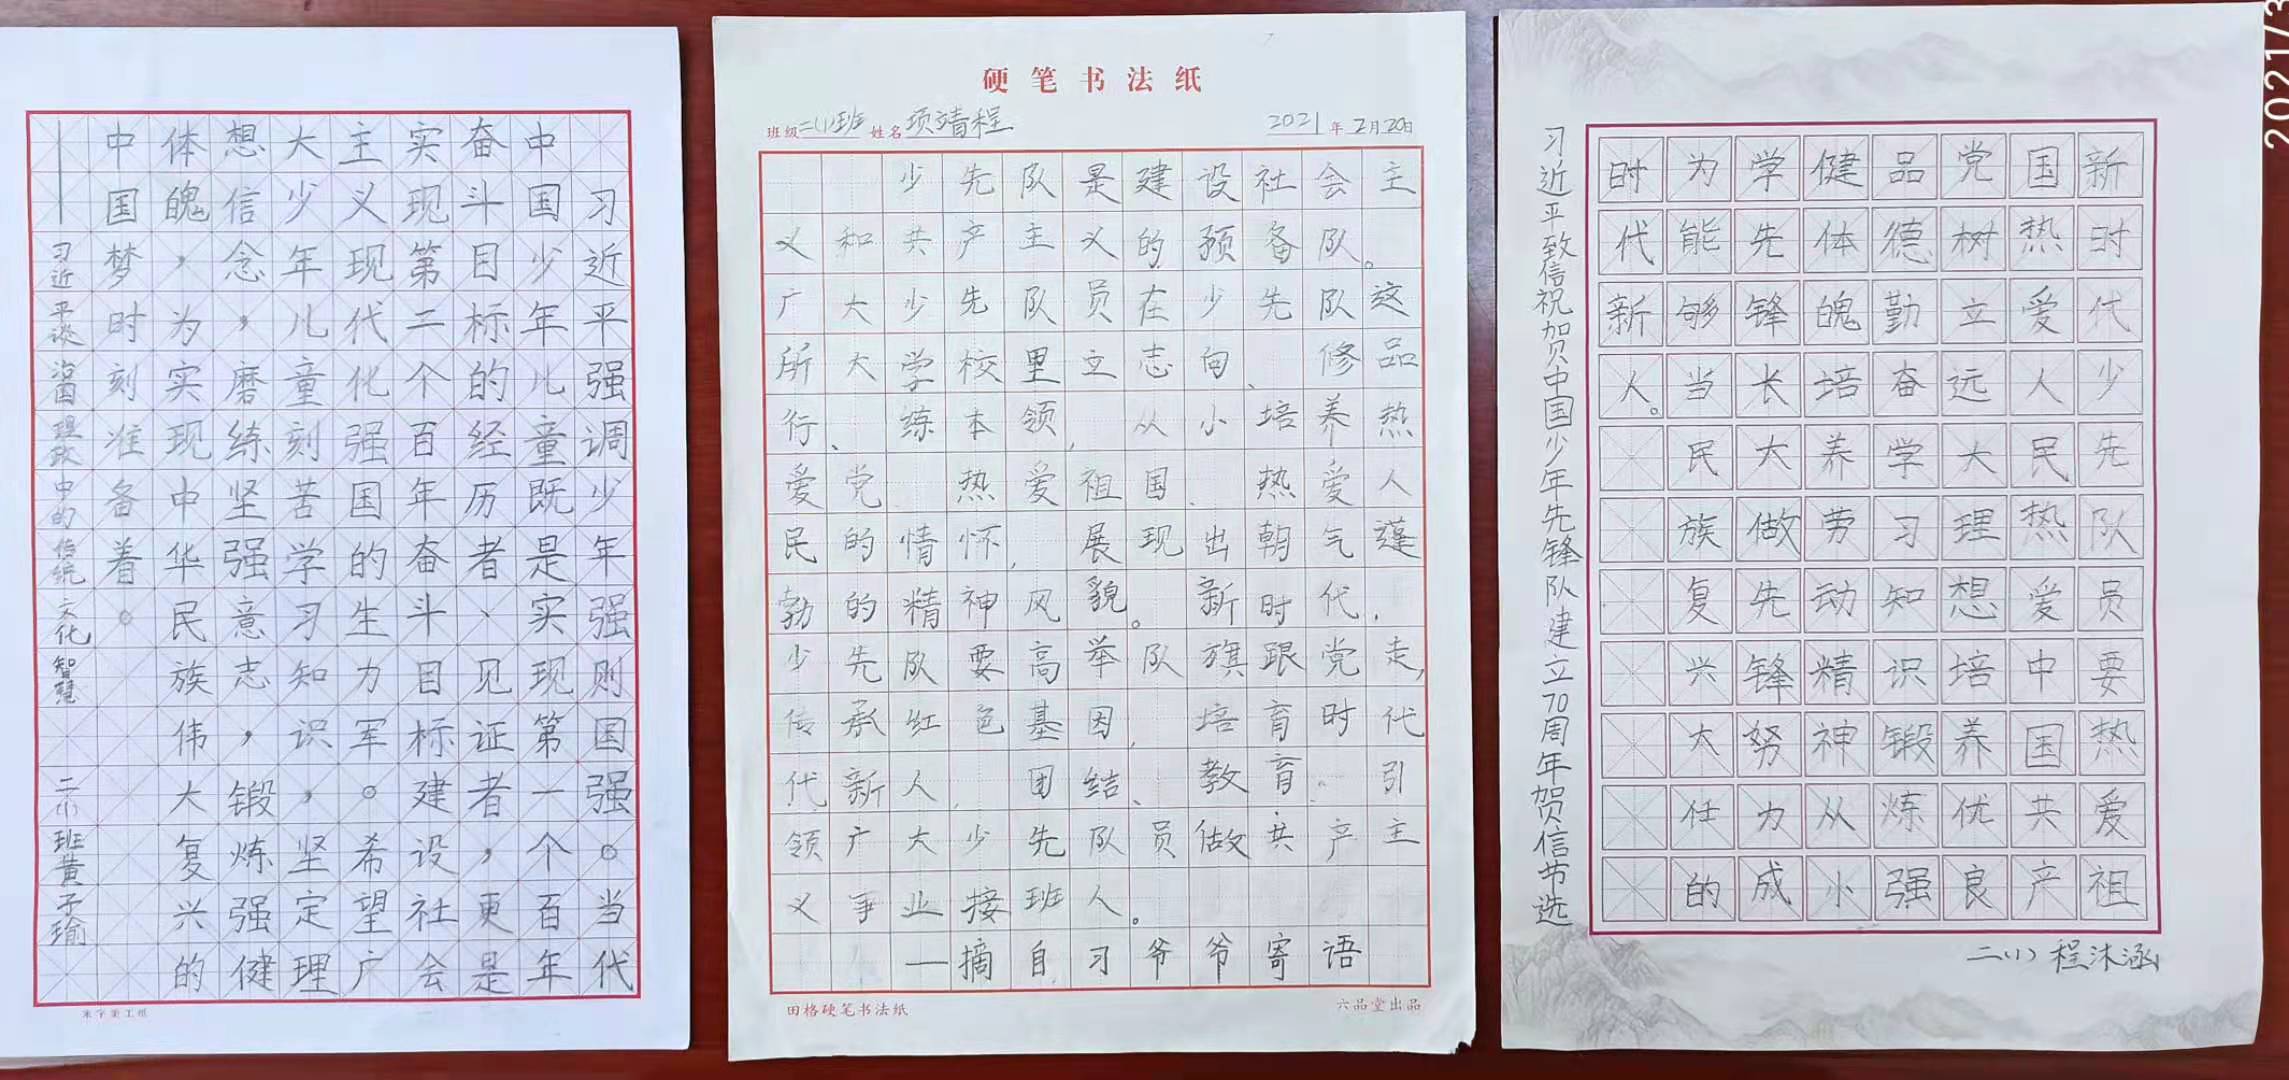 习近平强调少年强则国强。当代
中国少年儿童既是实现第一个百年
奋斗目标的经历者、见证者，更是
实现第二个百年奋斗目标建设社会
主义现代化强国的生力军。希望广
大少年儿童刻苦学习知识，坚定理
想信念，磨练坚强意志，锻炼强健
体魄，为实现中华民族伟大复兴的
中国梦时刻准备着。
——习近平谈治国理政中的传统文化智慧 二(1)班黄子瑜
米字美工纸
硬笔书法纸
班级二(1)班 姓名项靖程 2021年2月20日
少先队是建设社会主
义和共产主义的预备队。
广大少先队员在少先队这
所大学校里立志向、修品
行、练本领，从小培养热
爱党、热爱祖国、热爱人
民的情怀，展现出朝气蓬
勃的精神风貌。新时代，
少先队要高举队旗跟党走，
传承红色基因，培育时代
代新人，团结、教育、引
领广大少先队员做共产主
义事业接班人。
——摘自习爷爷寄语
田格硬笔书法纸 六品堂出品
新时代少先队员要热爱祖
国热爱人民热爱中国共产
党树立远大理想培养优良
品德勤奋学习知识锻炼强
健体魄培养劳动精神从小
学先锋长大做先锋努力成
为能够当民族复兴大任的
时代新人。
习近平致信祝贺中国少年先锋队建立70周年贺信节选
二(1)程沐涵
2021/3